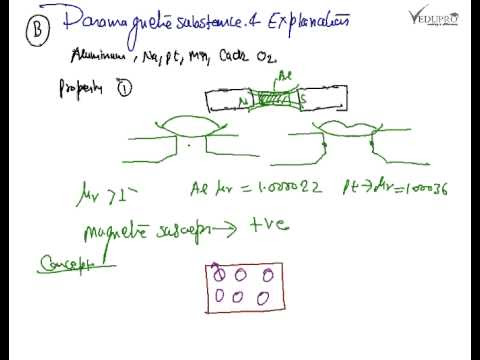 VEDUPRO
B Paramagnetic substance & Explanation
Aluminum, Na, Pt, Mn, CuCl2 O2
Property 1
Al
N S
μr > 1
Al μr = 1.000022 Pt → μr = 1.00036
Magnetic suscepti → +ve
Concept